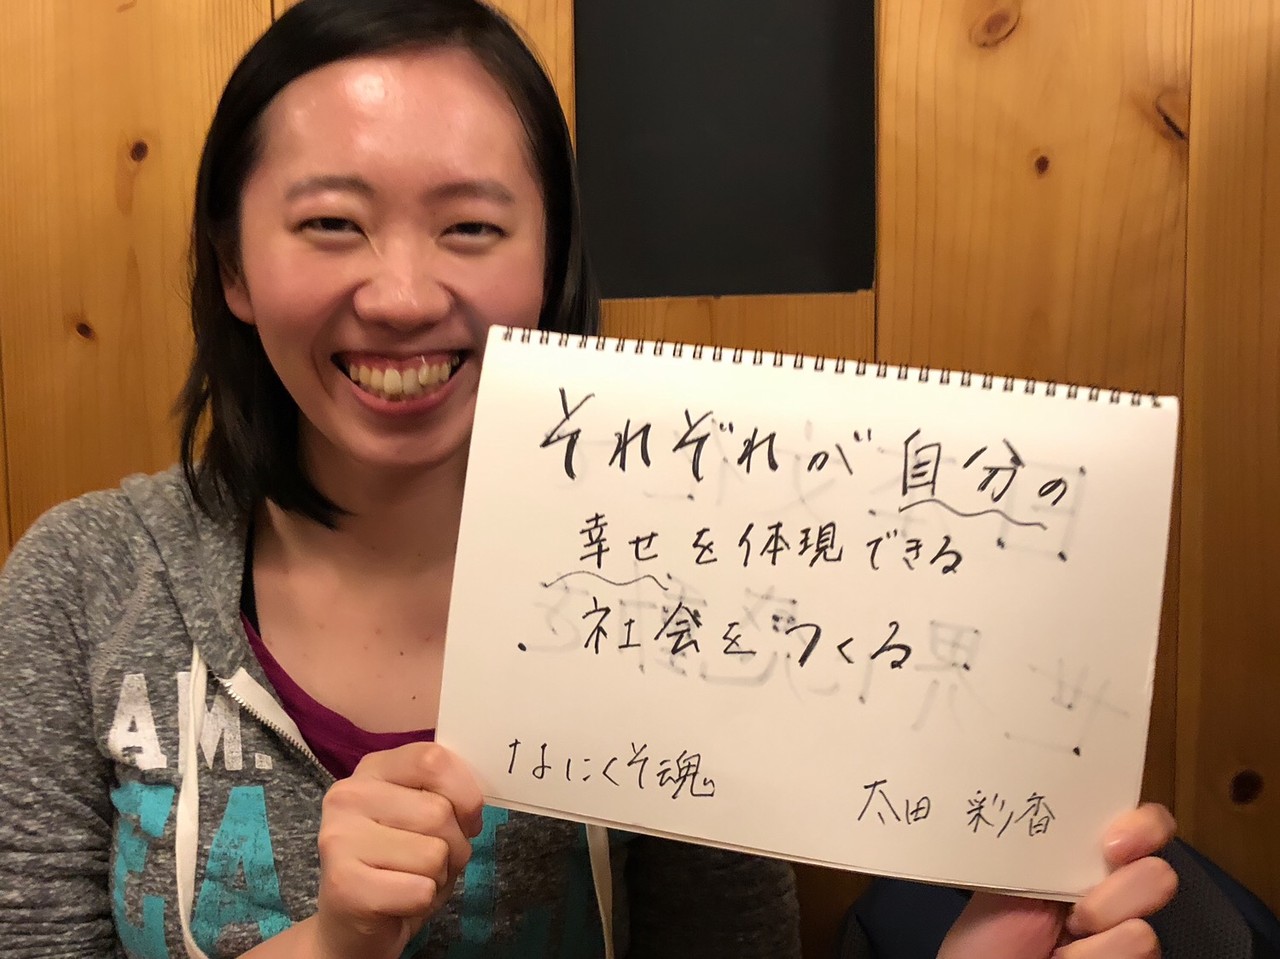 それぞれが自分の
幸せを体現できる
社会をつくる
なにくそ魂。
太田 彩香
AM.